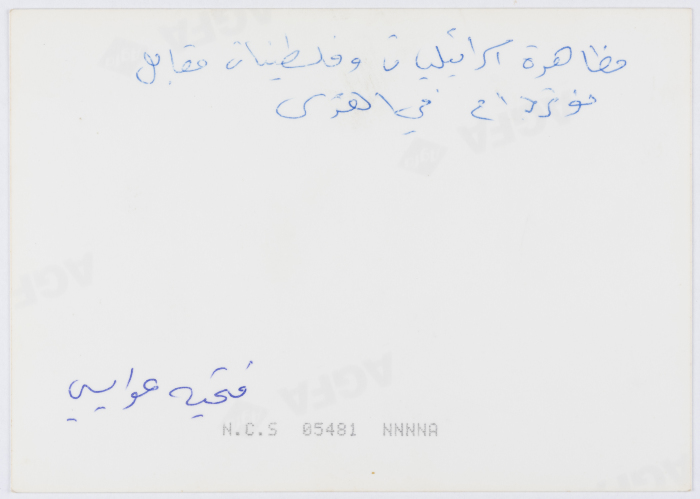 مظاهرة اسرائيليات وفلسطينيات مقابل
نوتردام في القدس
AGFA
AGFA
AGFA
AGFA
فتحيه عوايسي
N.C.S 05481 NNNNA
AGFA